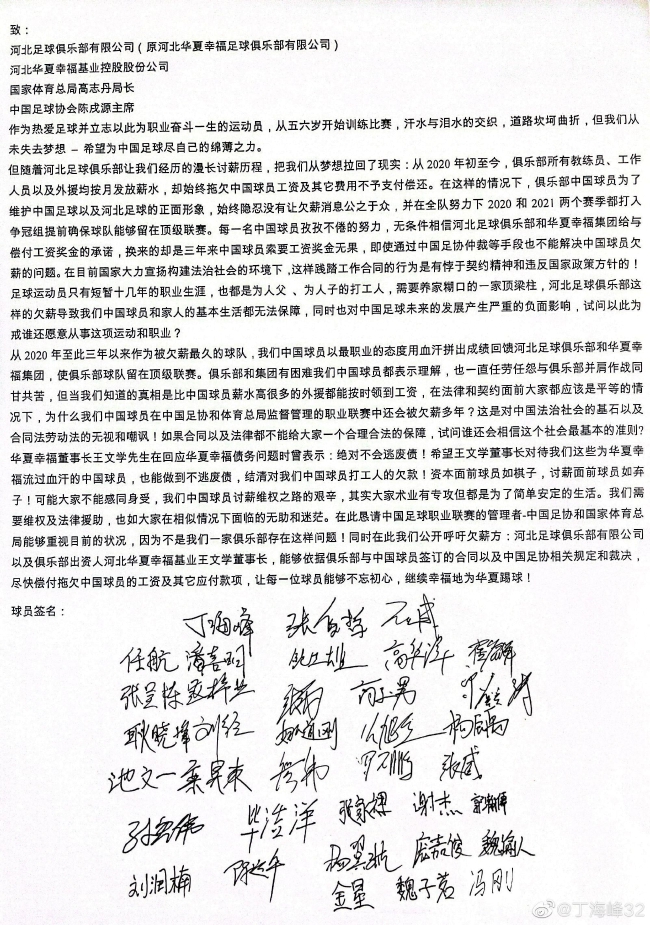 致：
河北足球俱乐部有限公司（原河北华夏幸福足球俱乐部有限公司）
河北华夏幸福基业控股股份公司
国家体育总局高志丹局长
中国足球协会陈戌源主席
作为热爱足球并立志以此为职业奋斗一生的运动员，从五六岁开始训练比赛，汗水与泪水的交织，道路坎坷曲折，但我们从
未失去梦想 – 希望为中国足球尽自己的绵薄之力。
但随着河北足球俱乐部让我们经历的漫长讨薪历程，把我们从梦想拉回了现实：从 2020 年初至今，俱乐部所有教练员、工作
人员以及外援均按月发放薪水，却始终拖欠中国球员工资及其它费用不予支付偿还。在这样的情况下，俱乐部中国球员为了
维护中国足球以及河北足球的正面形象，始终隐忍没有让欠薪消息公之于众，并在全队努力下 2020 和 2021 两个赛季都打入
争冠组提前确保球队能够留在顶级联赛。每一名中国球员孜孜不倦的努力，无条件相信河北足球俱乐部和华夏幸福集团给与
偿付工资奖金的承诺，换来的却是三年来中国球员索要工资奖金无果，即使通过中国足协仲裁等手段也不能解决中国球员欠
薪的问题。在目前国家大力宣扬构建法治社会的环境下，这样践踏工作合同的行为是有悖于契约精神和违反国家政策方针的！
足球运动员只有短暂十几年的职业生涯，也都是为人父、为人子的打工人，需要养家糊口的一家顶梁柱，河北足球俱乐部这
样的欠薪导致我们中国球员和家人的基本生活都无法保障，同时也对中国足球未来的发展产生严重的负面影响，试问以此为
戒谁还愿意从事这项运动和职业？
从 2020 年至此三年以来作为被欠薪最久的球队，我们中国球员以最职业的态度用血汗拼出成绩回馈河北足球俱乐部和华夏幸
福集团，使俱乐部球队留在顶级联赛。俱乐部和集团有困难我们中国球员都表示理解，也一直任劳任怨与俱乐部并肩作战同
甘共苦，但当我们知道的真相是比中国球员薪水高很多的外援都能按时领到工资，在法律和契约面前大家都应该是平等的情
况下，为什么我们中国球员在中国足协和体育总局监督管理的职业联赛中还会被欠薪多年？这是对中国法治社会的基石以及
合同法劳动法的无视和嘲讽！如果合同以及法律都不能给大家一个合理合法的保障，试问谁还会相信这个社会最基本的准则?
华夏幸福董事长王文学先生在回应华夏幸福债务问题时曾表示：绝对不会逃废债！希望王文学董事长对待我们这些为华夏幸
福流过血汗的中国球员，也能做到不逃废债，结清对我们中国球员打工人的欠款！资本面前球员如棋子，讨薪面前球员如弃
子！可能大家不能感同身受，我们中国球员讨薪维权之路的艰辛，其实大家术业有专攻但都是为了简单安定的生活。我们需
要维权及法律援助，也如大家在相似情况下面临的无助和迷茫。在此恳请中国足球职业联赛的管理者-中国足协和国家体育总
局能够重视目前的状况，因为不是我们一家俱乐部存在这样问题！同时在此我们公开呼吁欠薪方：河北足球俱乐部有限公司
以及俱乐部出资人河北华夏幸福基业王文学董事长，能够依据俱乐部与中国球员签订的合同以及中国足协相关规定和裁决，
尽快偿付拖欠中国球员的工资及其它应付款项，让每一位球员能够不忘初心，继续幸福地为华夏踢球！
球员签名：
丁海峰
任航 潘喜明 高华泽
张呈栋 寇梓生
耿晓峰 刘 杨
池文一 栾昊东 罗 鹏 张威
毕浩洋 张家祺 谢杰
杨 庞嘉俊 魏
刘润楠 金星 魏子茗 冯刚
@丁海峰32